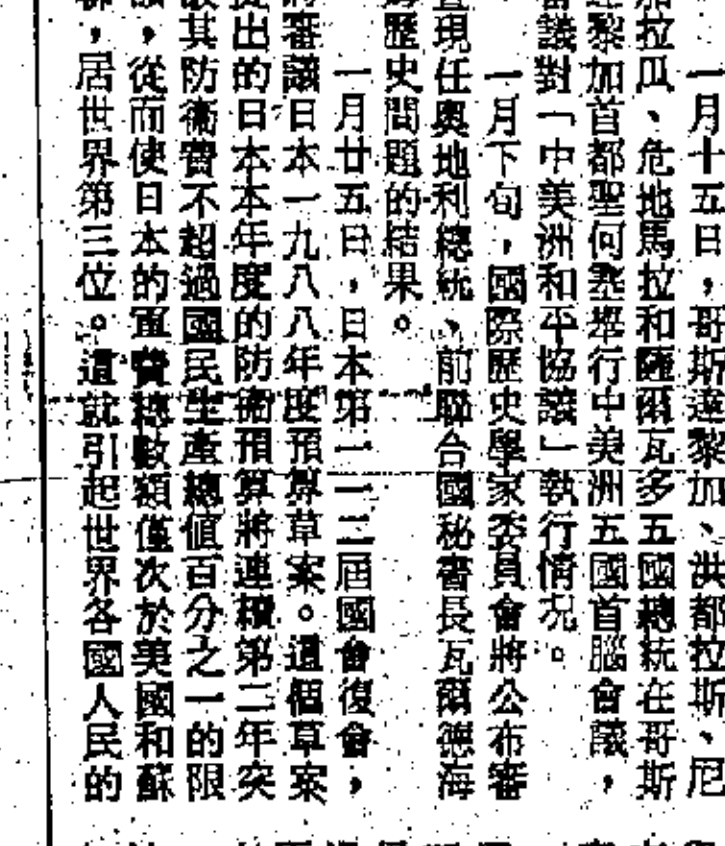 一月十五日，哥斯達黎加、洪都拉斯、尼
加拉瓜、危地馬拉和薩爾瓦多五國總統在哥斯
達黎加首都聖何塞舉行中美洲五國首腦會議，
審議對「中美洲和平協議」執行情況。
一月下旬，國際歷史學家委員會將公布審
查現任奧地利總統、前聯合國秘書長瓦爾德海
歷史問題的結果。
一月廿五日，日本第一一二屆國會復會，
將審議日本一九八八年度預算草案。這個草案
提出的日本本年度的防衛預算將連續第二年突
破其防衛費不超過國民生產總值百分之一的限
，從而使日本的軍費總數額僅次於美國和蘇
聯，居世界第三位。這就引起世界各國人民的